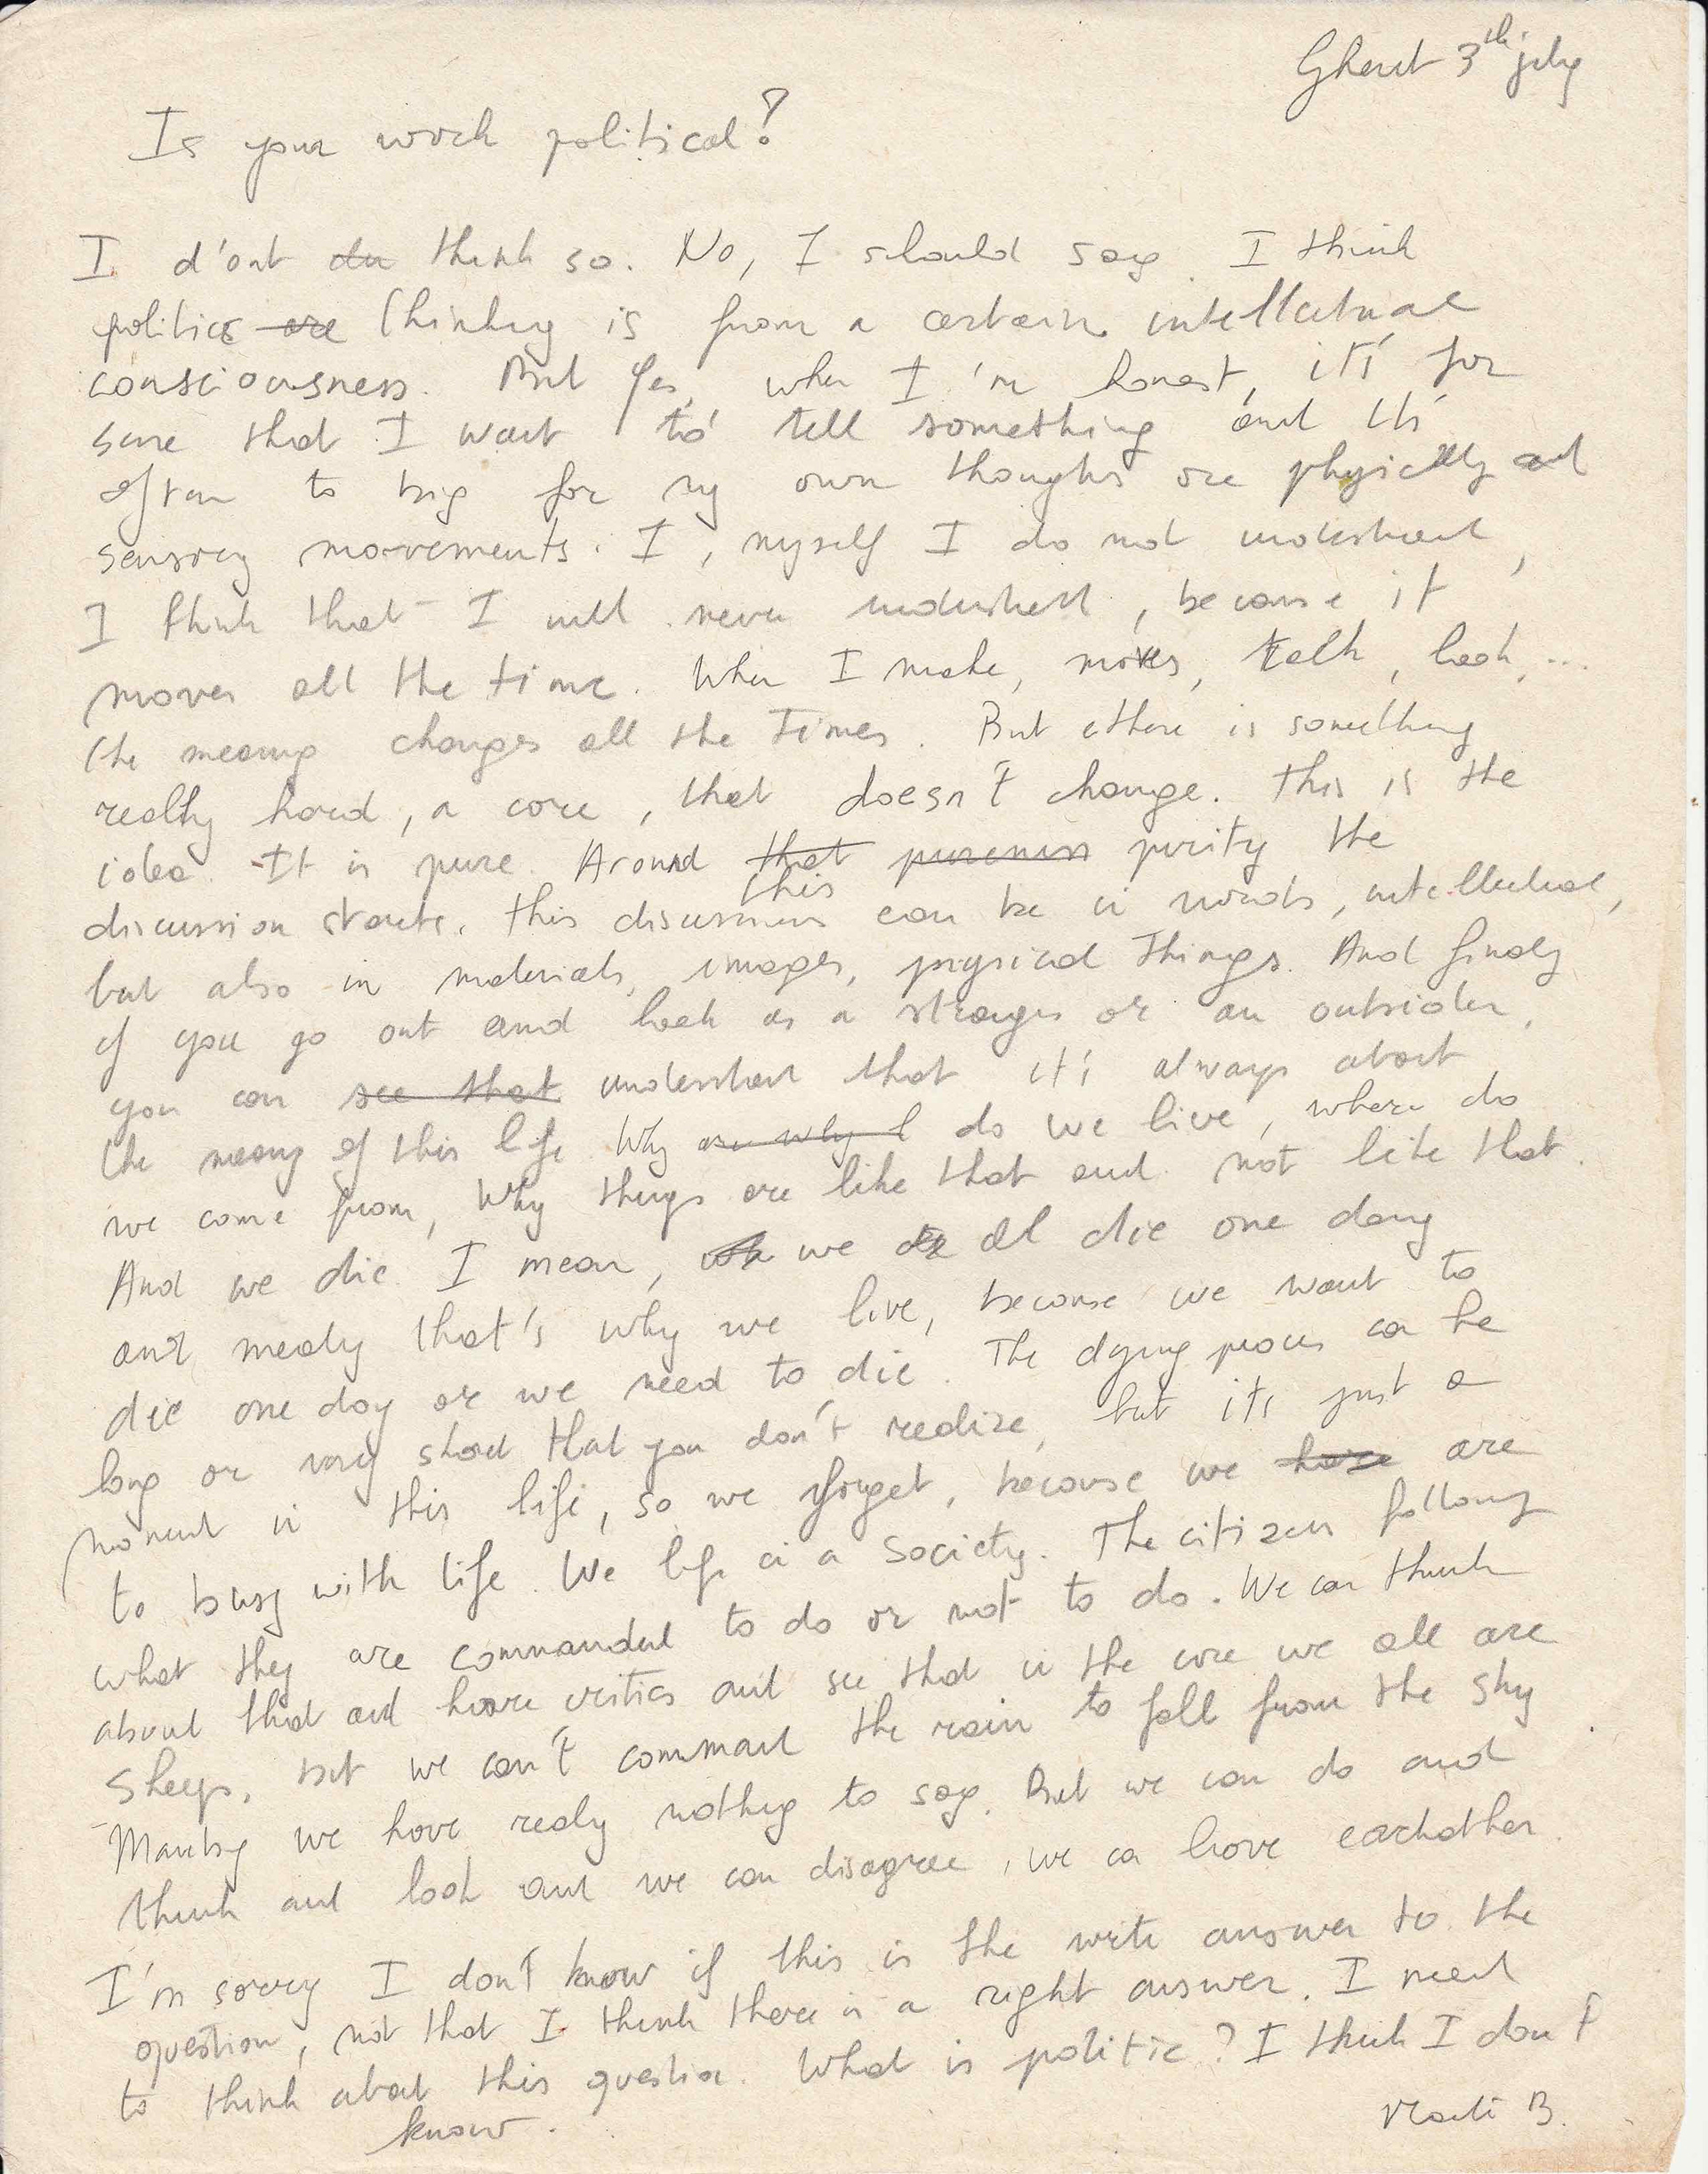 Ghent 3th july
Is your work political?
I d'ont du think so. No, I should say. I think
politics are thinking is from a certain intellectual
consciousness. But yes, when I'm honest, it's for
sure that I want to tell something and it's
often to big for my own thoughts are physically and
sensory movements. I, myself I do not understand,
I think that I will never understand, because it
moves all the time. When I make, moves, talk, look,...
the meaning changes all the times. But there is something
really hard, a core, that doesn't change. This is the
idea. It is pure. Around that pureness purity the
this
discussion starts. This discussion can be in words, intellectual,
but also in materials, images, physical things. And finaly
if you go out and look as a stranger or an outsider,
you can see that understand that it's always about
the meaning of this life. Why are why I do we live, where do
we come from, why things are like that and not like that.
And we die. I mean, we al die one day
and mealy that's why we live, because we want to
die one day or we need to die. The dying proces can be
long or very short that you don't realize, but it's just a
moment in this life, so we forget, because we have are
to busy with life. We life in a society. The citizens following
what they are commanded to do or not to do. We can think
about that and have critics and see that in the core we all are
sheeps, but we can't command the rain to fall from the sky
Mankig we have realy nothing to say. But we can do and
think and look and we can disagree, we can love eachother.
I'm sorry I don't know if this is the write answer to the
question, not that I think there is a right answer. I need
to think about this question. What is politic? I think I don't
know.
B.